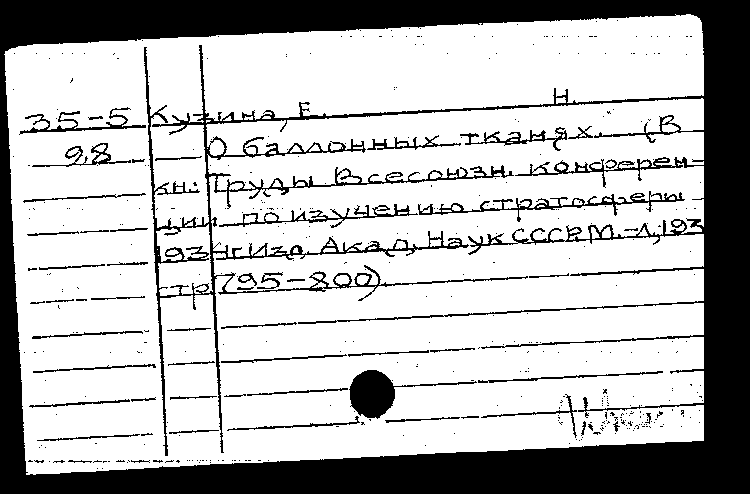 35-5 Кузина, Е. Н.
98 О баллонных тканях. (В
кн: Труды Всесоюзн. конферен-
ции по изучению стратосферы
1934г. Изд. Акад. Наук СССР. М.-Л, 193
стр 795-800).